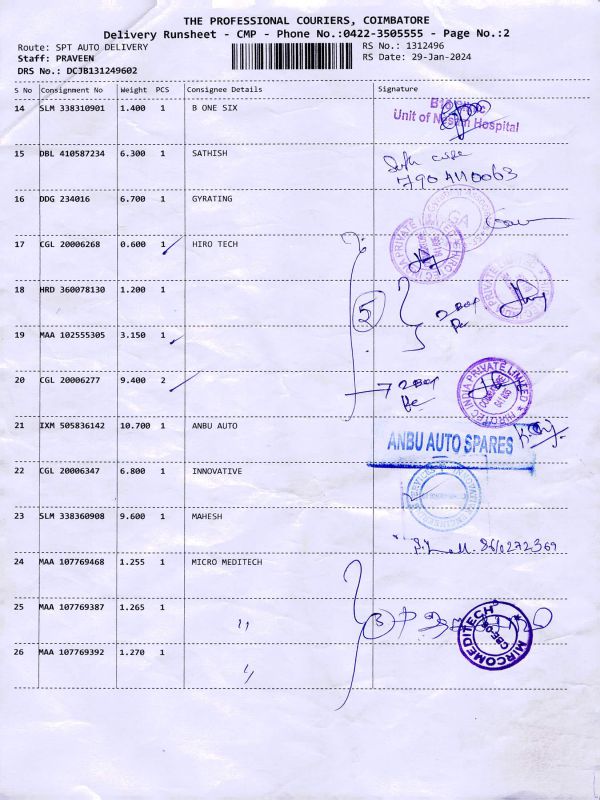 THE PROFESSIONAL COURIERS, COIMBATORE
Delivery Runsheet - CMP - Phone No.:0422-3505555 - Page No.:2
Route: SPT AUTO DELIVERY RS No.: 1312496
Staff: PRAVEEN RS Date: 29-Jan-2024
DRS No.: DCJB131249602
S No Consignment No Weight PCS Consignee Details Signature
14 SLM 338310901 1.400 1 B ONE SIX
Unit of Hospital
15 DBL 410587234 6.300 1 SATHISH
16 DDG 234016 6.700 1 GYRATING
GA
17 CGL 20006268 0.600 1 HIRO TECH
18 HRD 360078130 1.200 1
5
19 MAA 102555305 3.150 1
20 CGL 20006277 9.400 2
INDIA PRIVATE LIMITED
21 IXM 505836142 10.700 1 ANBU AUTO
ANBU AUTO SPARES
22 CGL 20006347 6.800 1 INNOVATIVE
23 SLM 338360908 9.600 1 MAHESH
24 MAA 107769468 1.255 1 MICRO MEDITECH
25 MAA 107769387 1.265 1 〃
3
MIRCOMEDITECH
CBE
26 MAA 107769392 1.270 1 〃